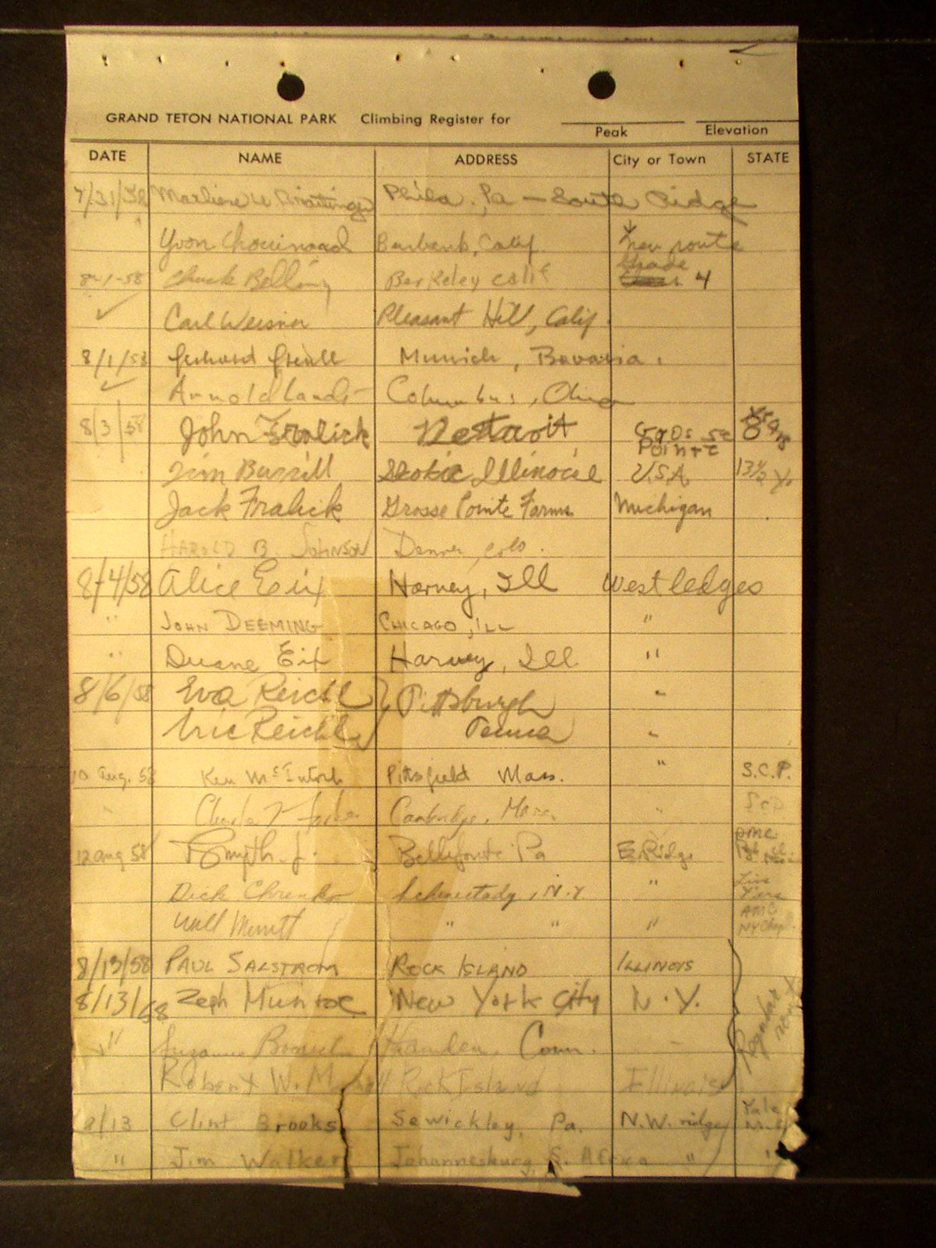 GRAND TETON NATIONAL PARK Climbing Register for
Peak Elevation
DATE NAME ADDRESS City or Town STATE
7/31/58 Marliene Phila., Pa — South Ridge
Yvon Chouinaad Burbank, Calif. new route
Grade
8-1-58 Chuck Berkeley calif 4
✓ Carl Weisner Pleasant Hill, Calif.
8/1/58 Gerhard Munich, Bavaria.
✓ Arnold Columbus, Ohio
8/3/58 John Fralick Detroit Grosse Pointe 8
Jim Burrill Skokie Illinois U.S.A. 13½ yr
Jack Fralick Grosse Pointe Farms Michigan
HAROLD B. JOHNSON Denver, Colo.
8/4/58 Alice Eix Harvey, Ill West ledges
" JOHN DEEMING CHICAGO, ILL "
" Duane Eix Harvey, Ill "
8/6/58 Eva Reichl } Pittsburgh "
Eric Reichl Penna "
10 Aug. 58 Ken McIntosh Pittsfield Mass. " S.C.P.
" Cambridge, Mass. "
12 aug 58 Smyth Jr. Bellefonte Pa E. Ridge AMC
Dick Schenectady, N.Y. "
Will Merritt " " " AMC NY Chap.
8/13/58 PAUL SALSTROM ROCK ISLAND ILLINOIS
8/13/58 Zeph Munroe New York City N.Y.
" Suzanne Hamden, Conn. Regular route
Robert W. Rock Island Illinois
8/13 Clint Brooks Sewickley, Pa. N.W. ridge Yale
" Jim Walker Johannesburg, S. Africa " "